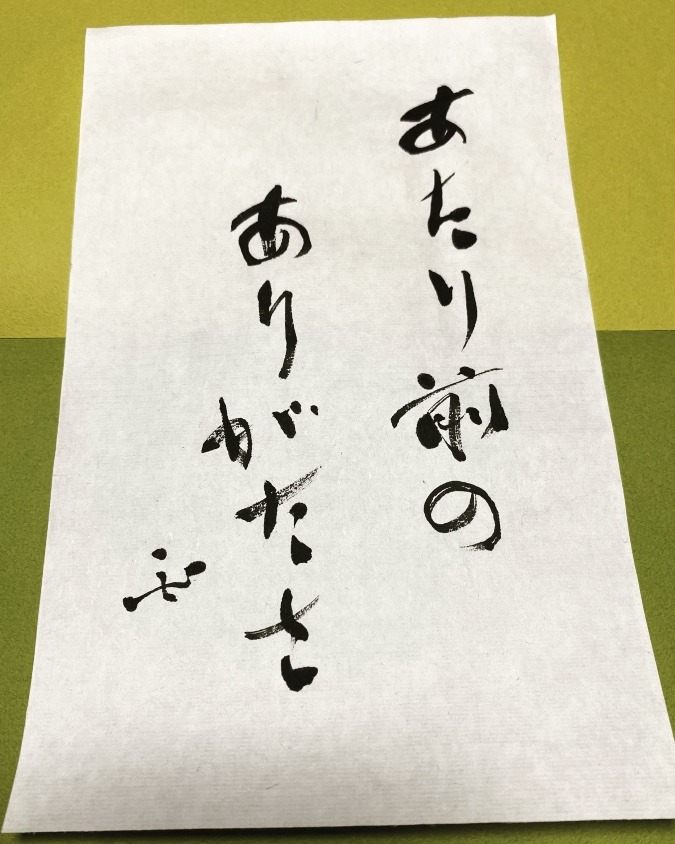 あたり前の
ありがたさ